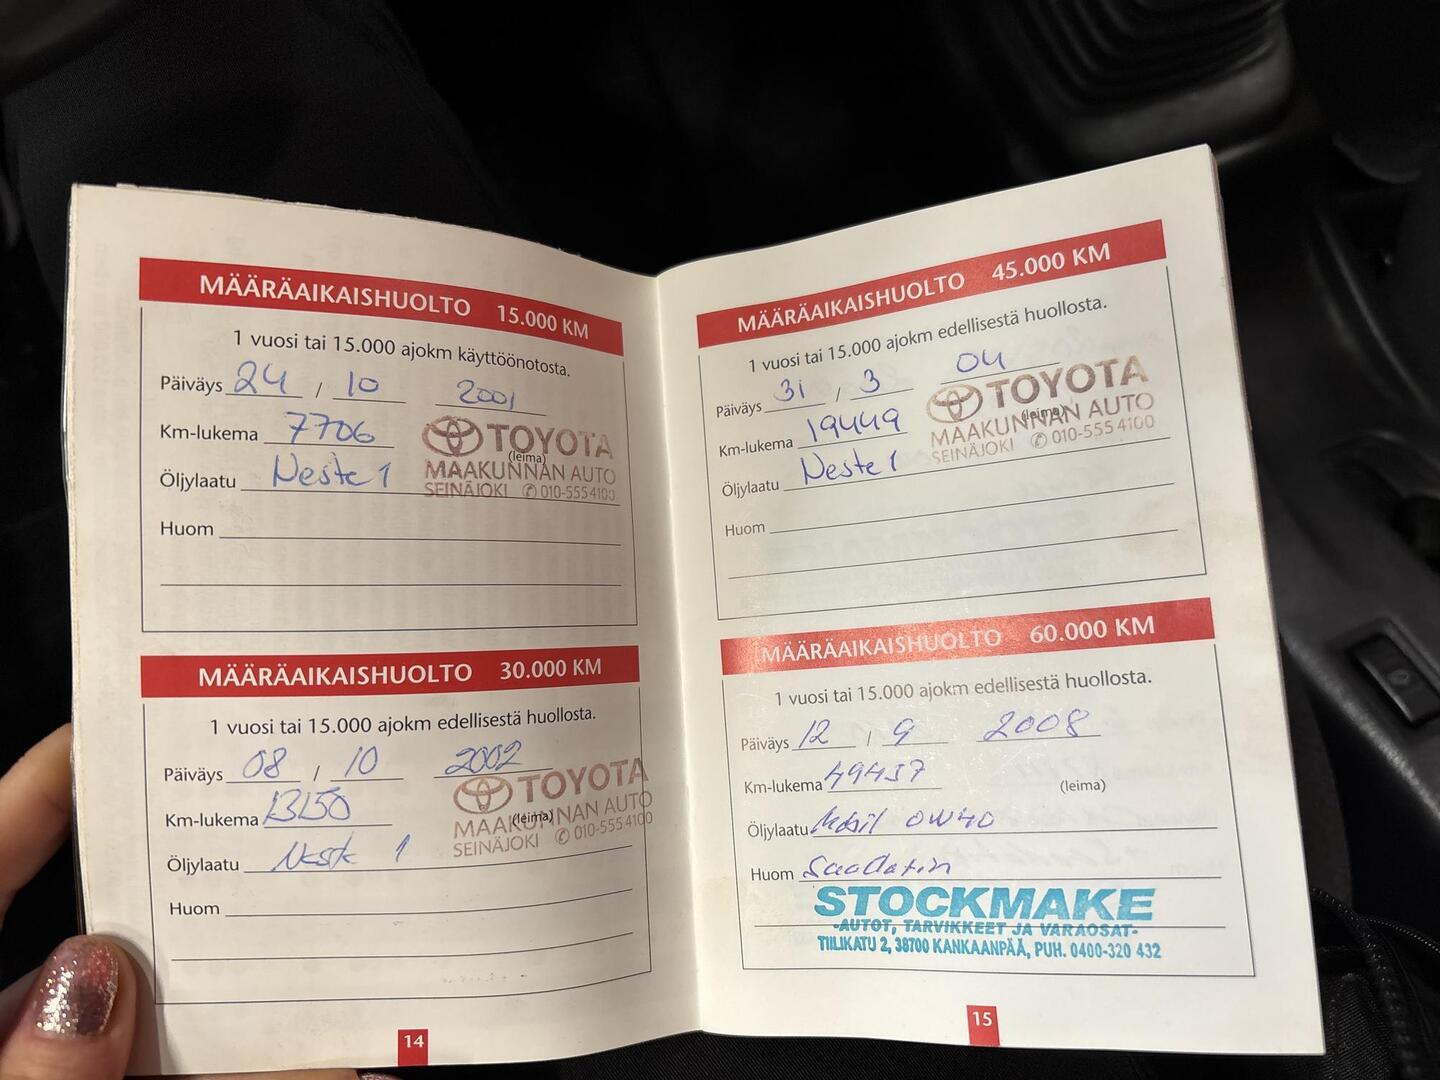 MÄÄRÄAIKAISHUOLTO 15.000 KM
1 vuosi tai 15.000 ajokm käyttöönotosta.
Päiväys 24 / 10 2001
Km-lukema 7706
TOYOTA
(leima)
Öljylaatu Neste 1
MAAKUNNAN AUTO
SEINÄJOKI ✆ 010-555 4100
Huom
MÄÄRÄAIKAISHUOLTO 30.000 KM
1 vuosi tai 15.000 ajokm edellisestä huollosta.
Päiväys 08 / 10 2002
TOYOTA
Km-lukema 13150
(leima)
MAAKUNNAN AUTO
SEINÄJOKI ✆ 010-555 4100
Öljylaatu Neste 1
Huom
14
MÄÄRÄAIKAISHUOLTO 45.000 KM
1 vuosi tai 15.000 ajokm edellisestä huollosta.
Päiväys 31 / 3 04
TOYOTA
Km-lukema 19449
(leima)
MAAKUNNAN AUTO
SEINÄJOKI ✆ 010-555 4100
Öljylaatu Neste 1
Huom
MÄÄRÄAIKAISHUOLTO 60.000 KM
1 vuosi tai 15.000 ajokm edellisestä huollosta.
Päiväys 12 / 9 2008
Km-lukema 49437
(leima)
Öljylaatu Mobil 0W40
Huom
STOCKMAKE
-AUTOT, TARVIKKEET JA VARAOSAT-
TIILIKATU 2, 38700 KANKAANPÄÄ, PUH. 0400-320 432
15